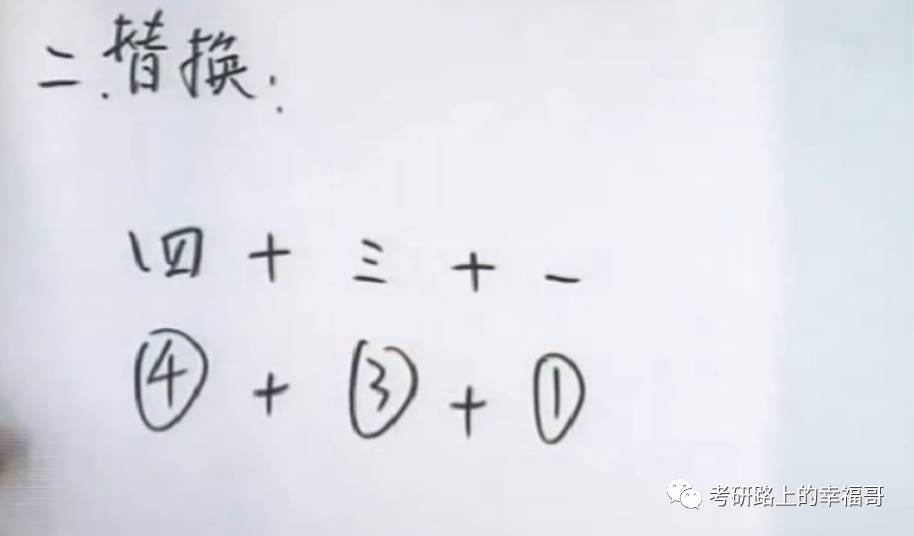 二.替换:
四 + 三 + 一
④ + ③ + ①
考研路上的幸福哥